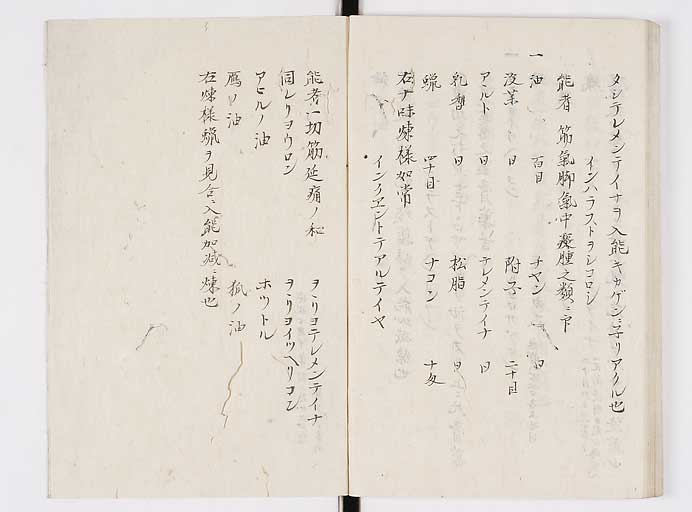 タシテレメンテイナヲ入能キカゲンニ子リアクル也
インハラストヲシコロシ
能者 筋氣脚氣中痰腫之類ニ下
一 油 百目 ナヤン 日
没薬 日 附子 二十目
アルト 日 テレメンテイナ 日
乳香 日 松脂 日
蝋 四十目 ナコン 十匁
右十味煉様如常
インクエントテアルテイヤ
能者一切筋延痛ノ和
同レリヨウロン ヲヽリヨテレメンテイナ
アヒルノ油 ヲヽリヨイツヘリコン
鴈ノ油 ホツトル
狐ノ油
右煉様蝋ヲ見合ニ入能加減ニ煉也